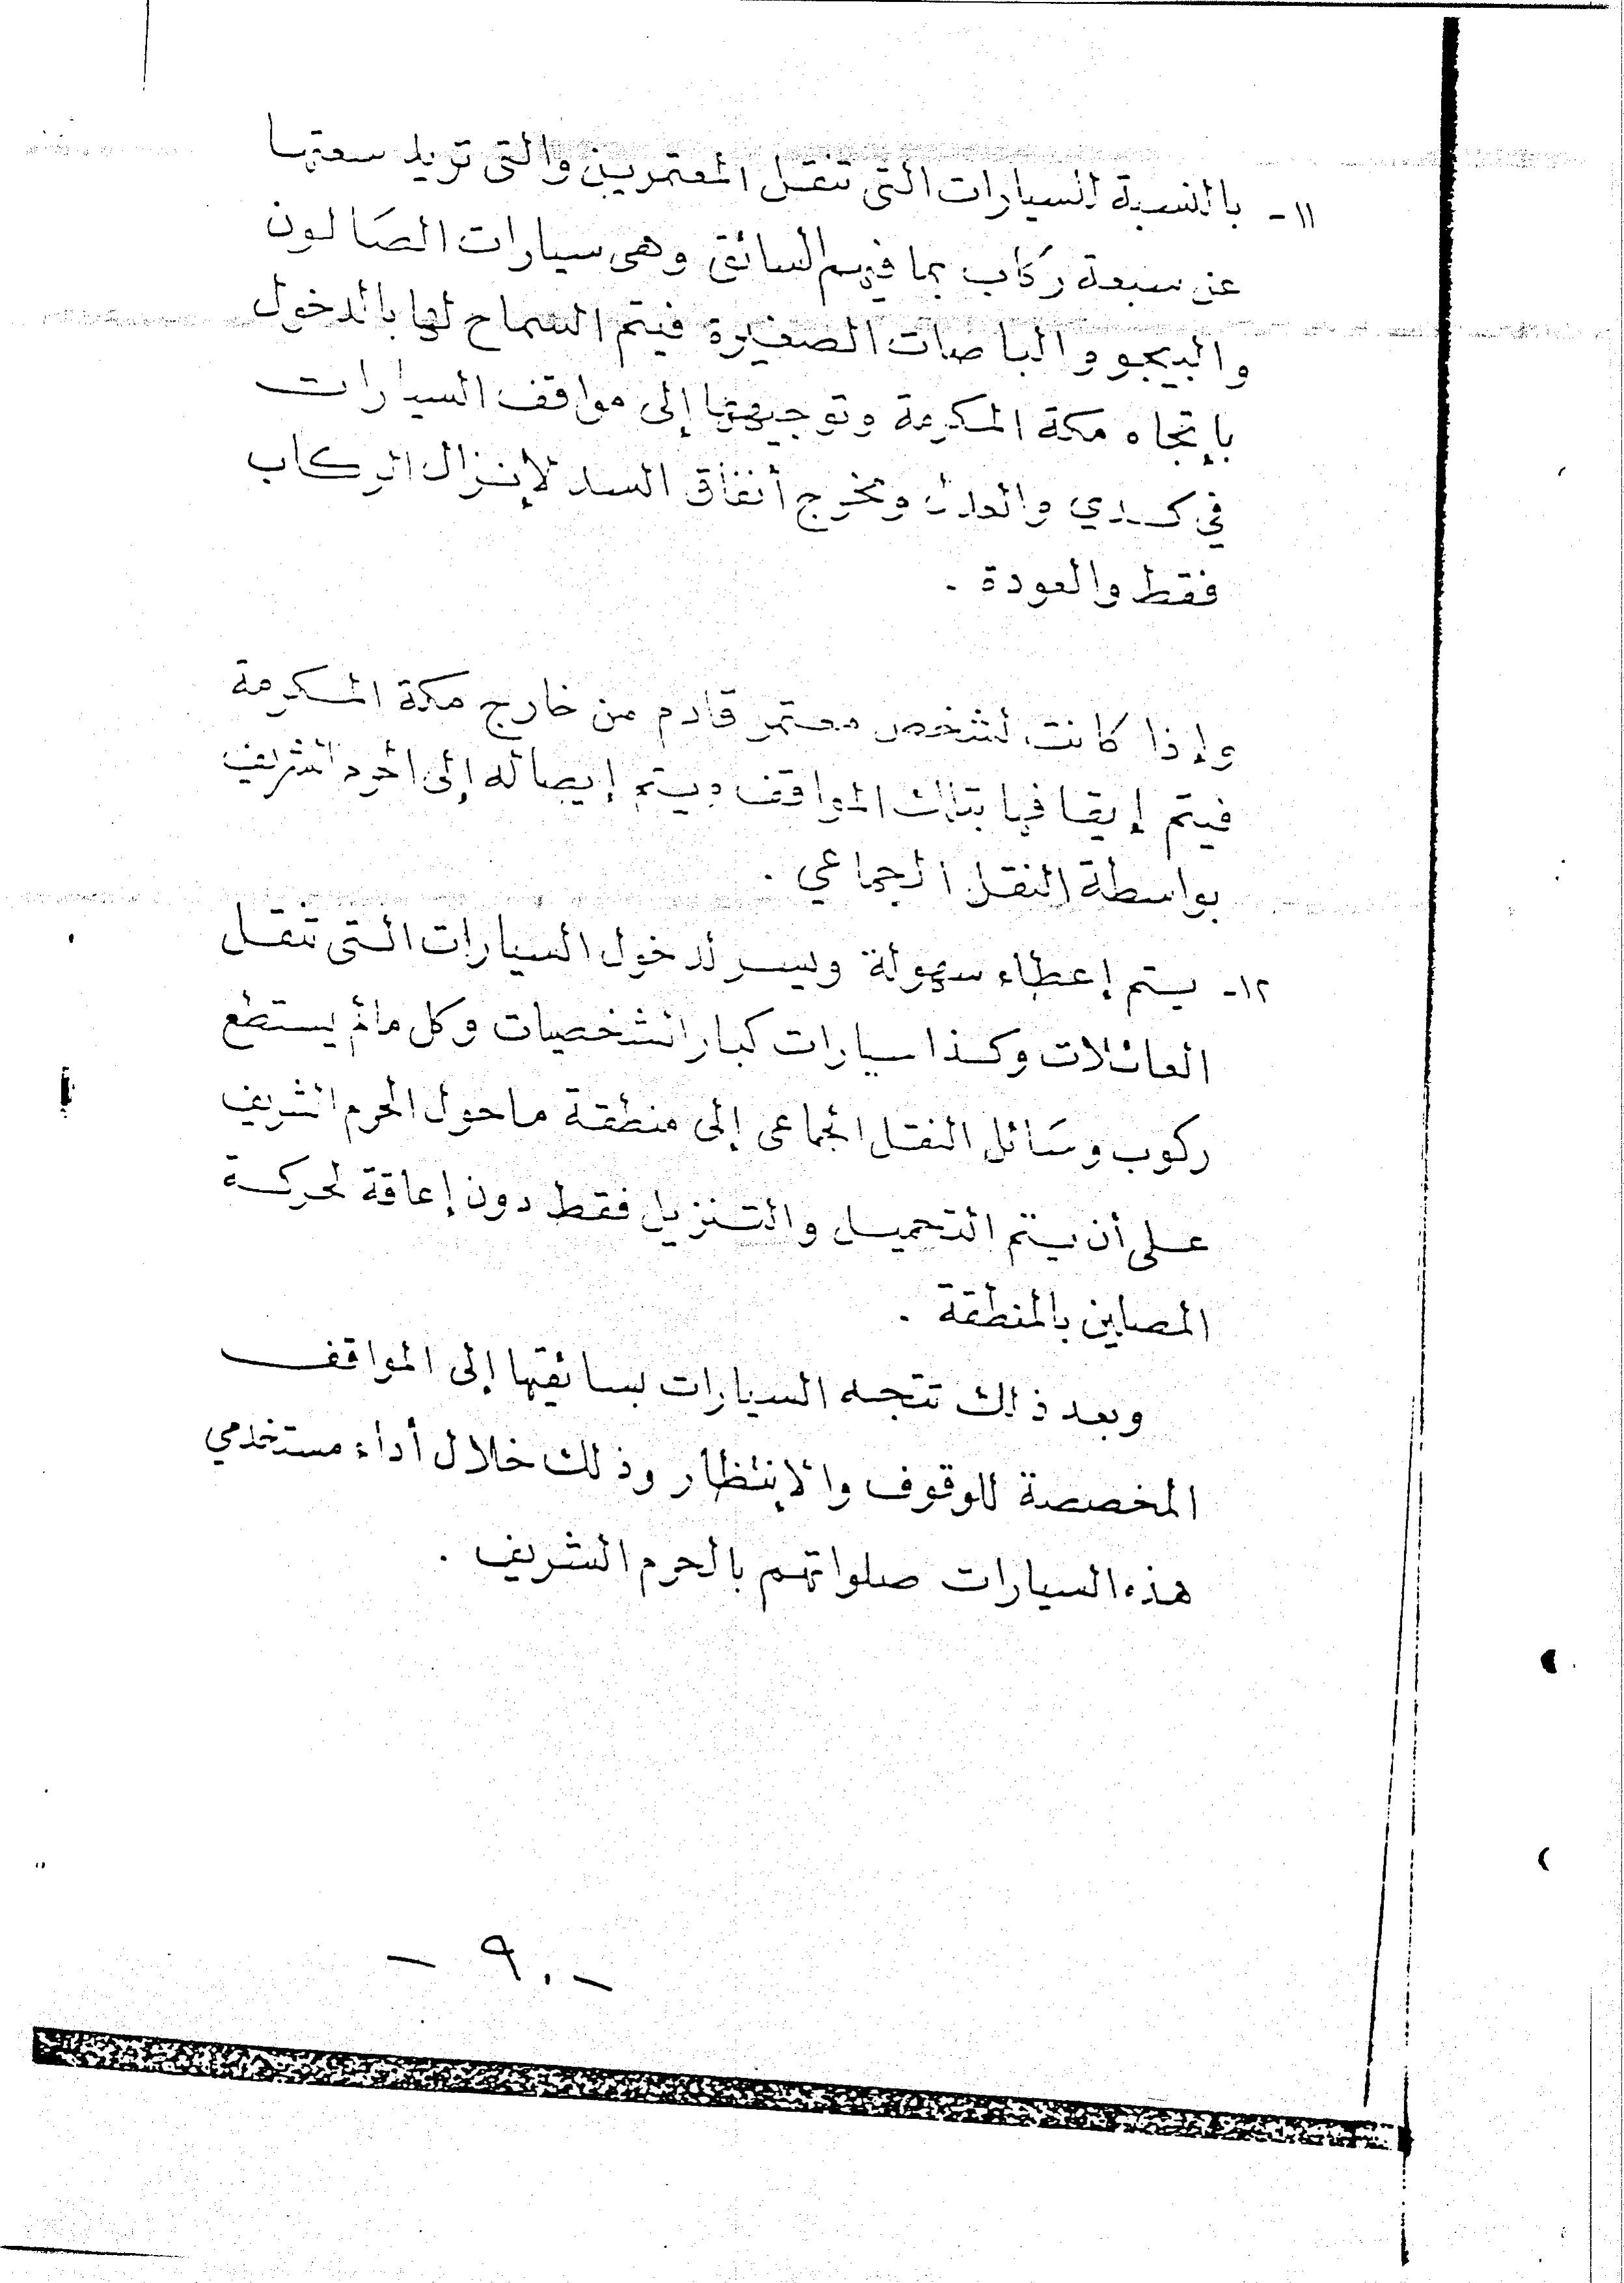 ١١- بالنسبة للسيارات التى تنقل المعتمرين والتى تزيد سعتها
عن سبعة ركاب بما فيهم السائق وهى سيارات الصالون
والبيجو والباصات الصغيرة فيتم السماح لها بالدخول
بإتجاه مكة المكرمة وتوجيهها إلى مواقف السيارات
في كدي والعدل ومخرج أنفاق السد لإنزال الركاب
فقط والعودة .
وإذا كانت لشخص معتمر قادم من خارج مكة المكرمة
فيتم إيقافها بتلك المواقف ويتم إيصاله إلى الحرم الشريف
بواسطة النقل الجماعي .
١٢- يتم إعطاء سهولة ويسر لدخول السيارات التى تنقل
العائلات وكذا سيارات كبار الشخصيات وكل مالم يستطع
ركوب وسائل النقل الجماعى إلى منطقة ماحول الحرم الشريف
على أن يتم التحميل والتنزيل فقط دون إعاقة لحركة
المصلين بالمنطقة .
وبعد ذلك تتجه السيارات بسائقيها إلى المواقف
المخصصة للوقوف والإنتظار وذلك خلال أداء مستخدمي
هذه السيارات صلواتهم بالحرم الشريف .
- ٩٠ -